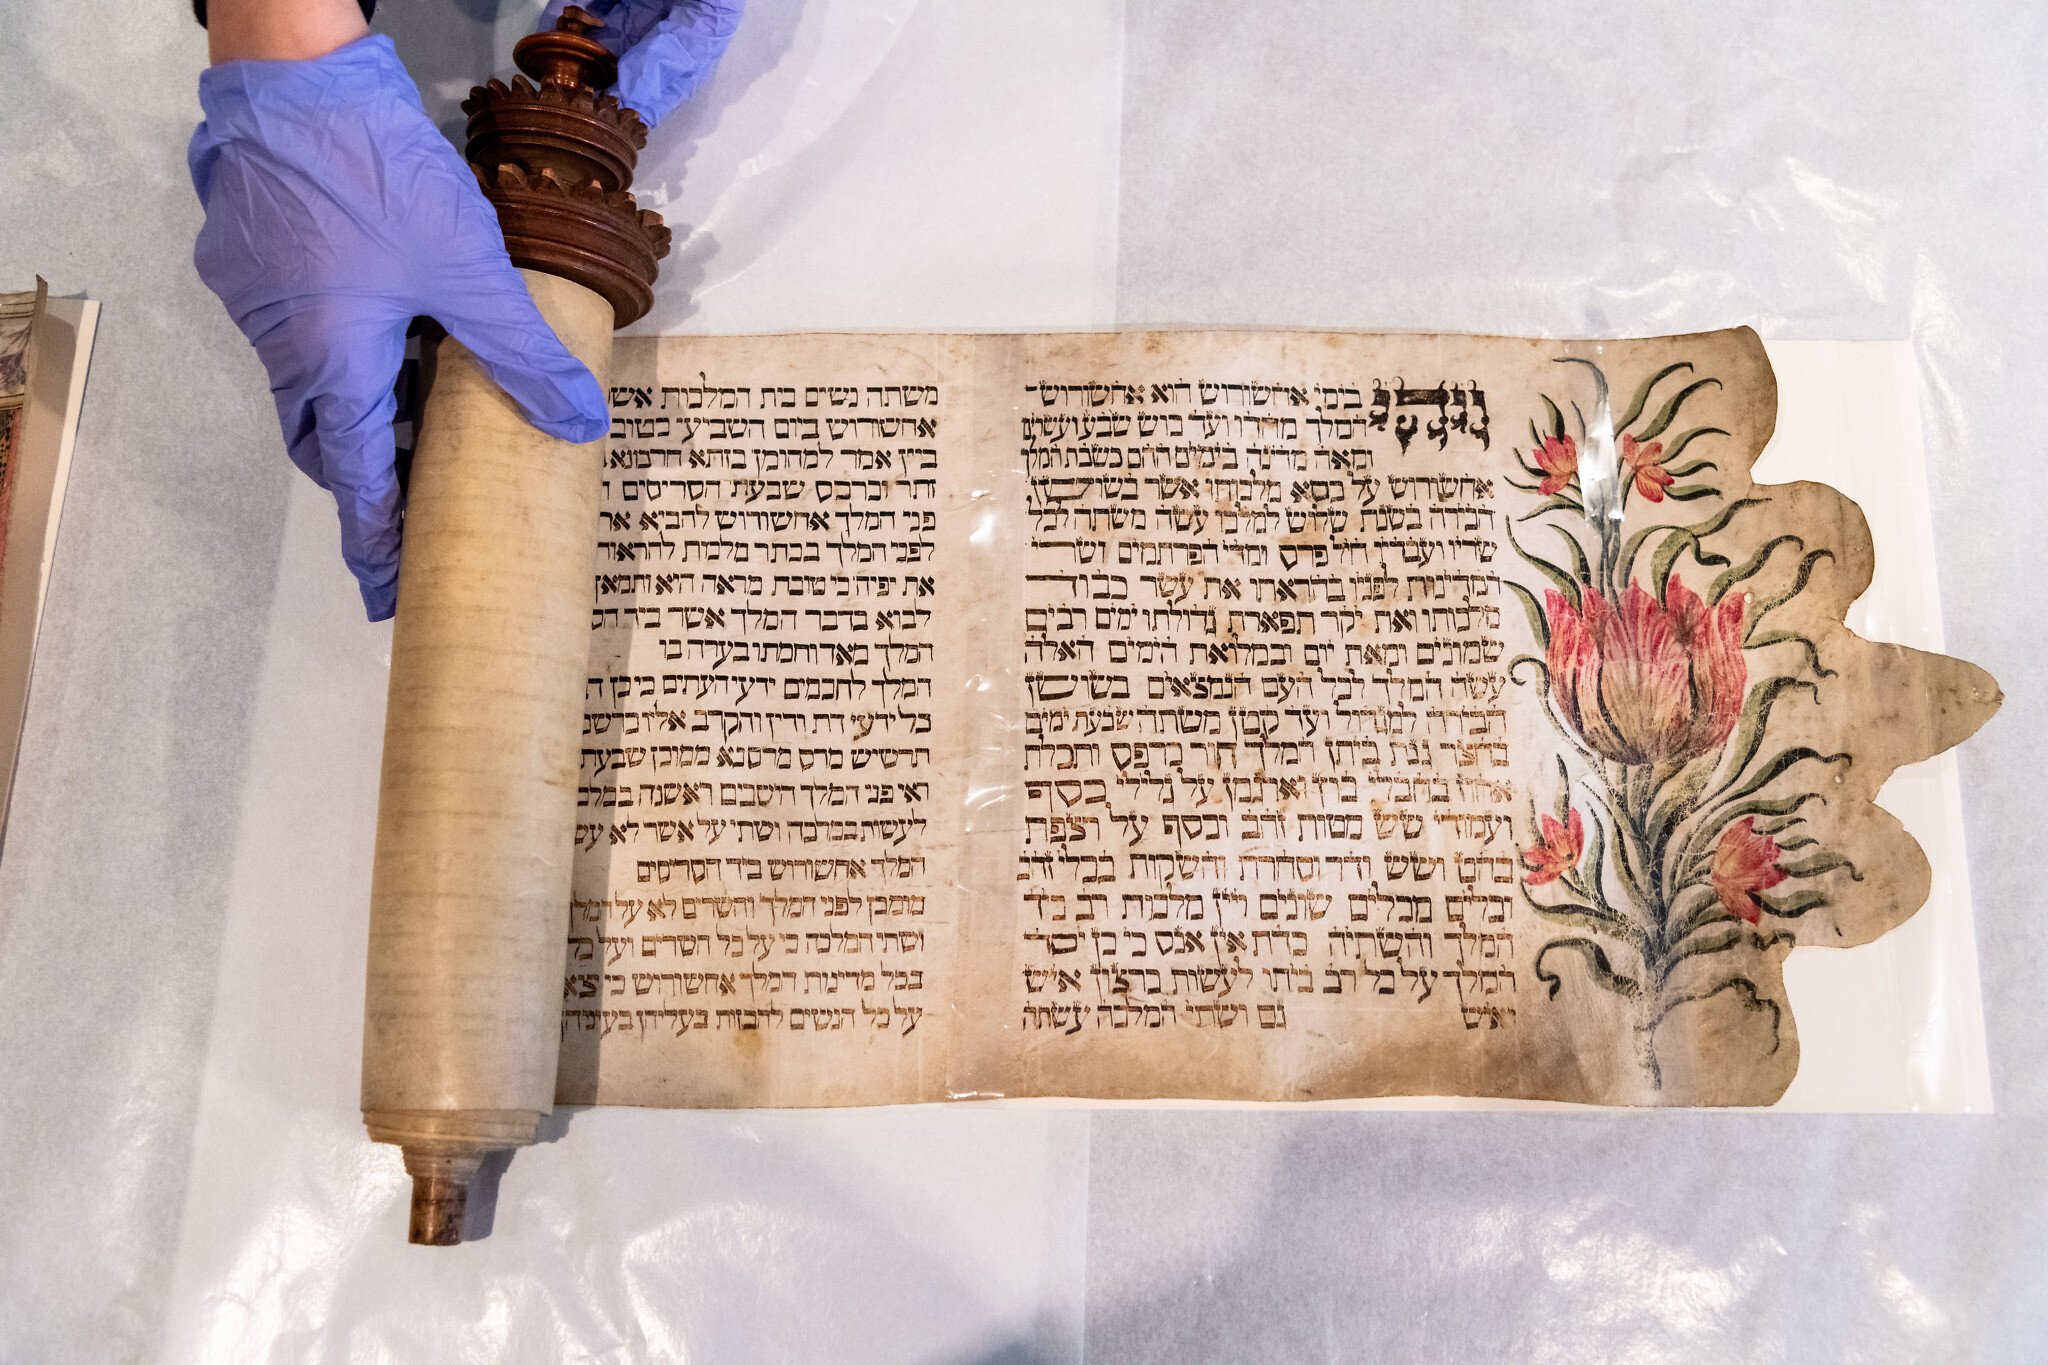 ויהי בימי אחשורוש הוא אחשורוש
המלך מהדו ועד כוש שבע ועשרים
ומאה מדינה בימים ההם כשבת המלך
אחשורוש על כסא מלכותו אשר בשושן
הבירה בשנת שלוש למלכו עשה משתה לכל
שריו ועבדיו חיל פרס ומדי הפרתמים ושרי
המדינות לפניו בהראתו את עשר כבוד
מלכותו ואת יקר תפארת גדולתו ימים רבים
שמונים ומאת יום ובמלואת הימים האלה
עשה המלך לכל העם הנמצאים בשושן
הבירה למגדול ועד קטן משתה שבעת ימים
בחצר גנת ביתן המלך חור כרפס ותכלת
אחוז בחבלי בוץ וארגמן על גלילי כסף
ועמודי שש מטות זהב וכסף על רצפת
בהט ושש ודר וסחרת והשקות בכלי זהב
וכלים מכלים שונים ויין מלכות רב כיד
המלך והשתיה כדת אין אנס כי כן יסד
המלך על כל רב ביתו לעשות כרצון איש
ואיש גם ושתי המלכה עשתה
משתה נשים בית המלכות
אחשורוש ביום השביעי כטוב
ביין אמר למהומן בזתא חרבונא
זתר וכרכס שבעת הסריסים
פני המלך אחשורוש להביא את
לפני המלך בכתר מלכות להראות
את יפיה כי טובת מראה היא ותמאן
לבוא בדבר המלך אשר ביד
המלך מאד וחמתו בערה בו
המלך לחכמים ידעי העתים כי כן
כל ידעי דת ודין והקרב אליו כרשנא
תרשיש מרס מרסנא ממוכן שבעת
ראי פני המלך הישבים ראשנה
לעשות במלכה ושתי על אשר לא
המלך אחשורוש ביד הסריסים
מומכן לפני המלך והשרים לא על המלך
ושתי המלכה כי על כל השרים ועל כל
בכל מדינות המלך אחשורוש כי יצא
על כל הנשים להבזות בעליהן בעיניהן